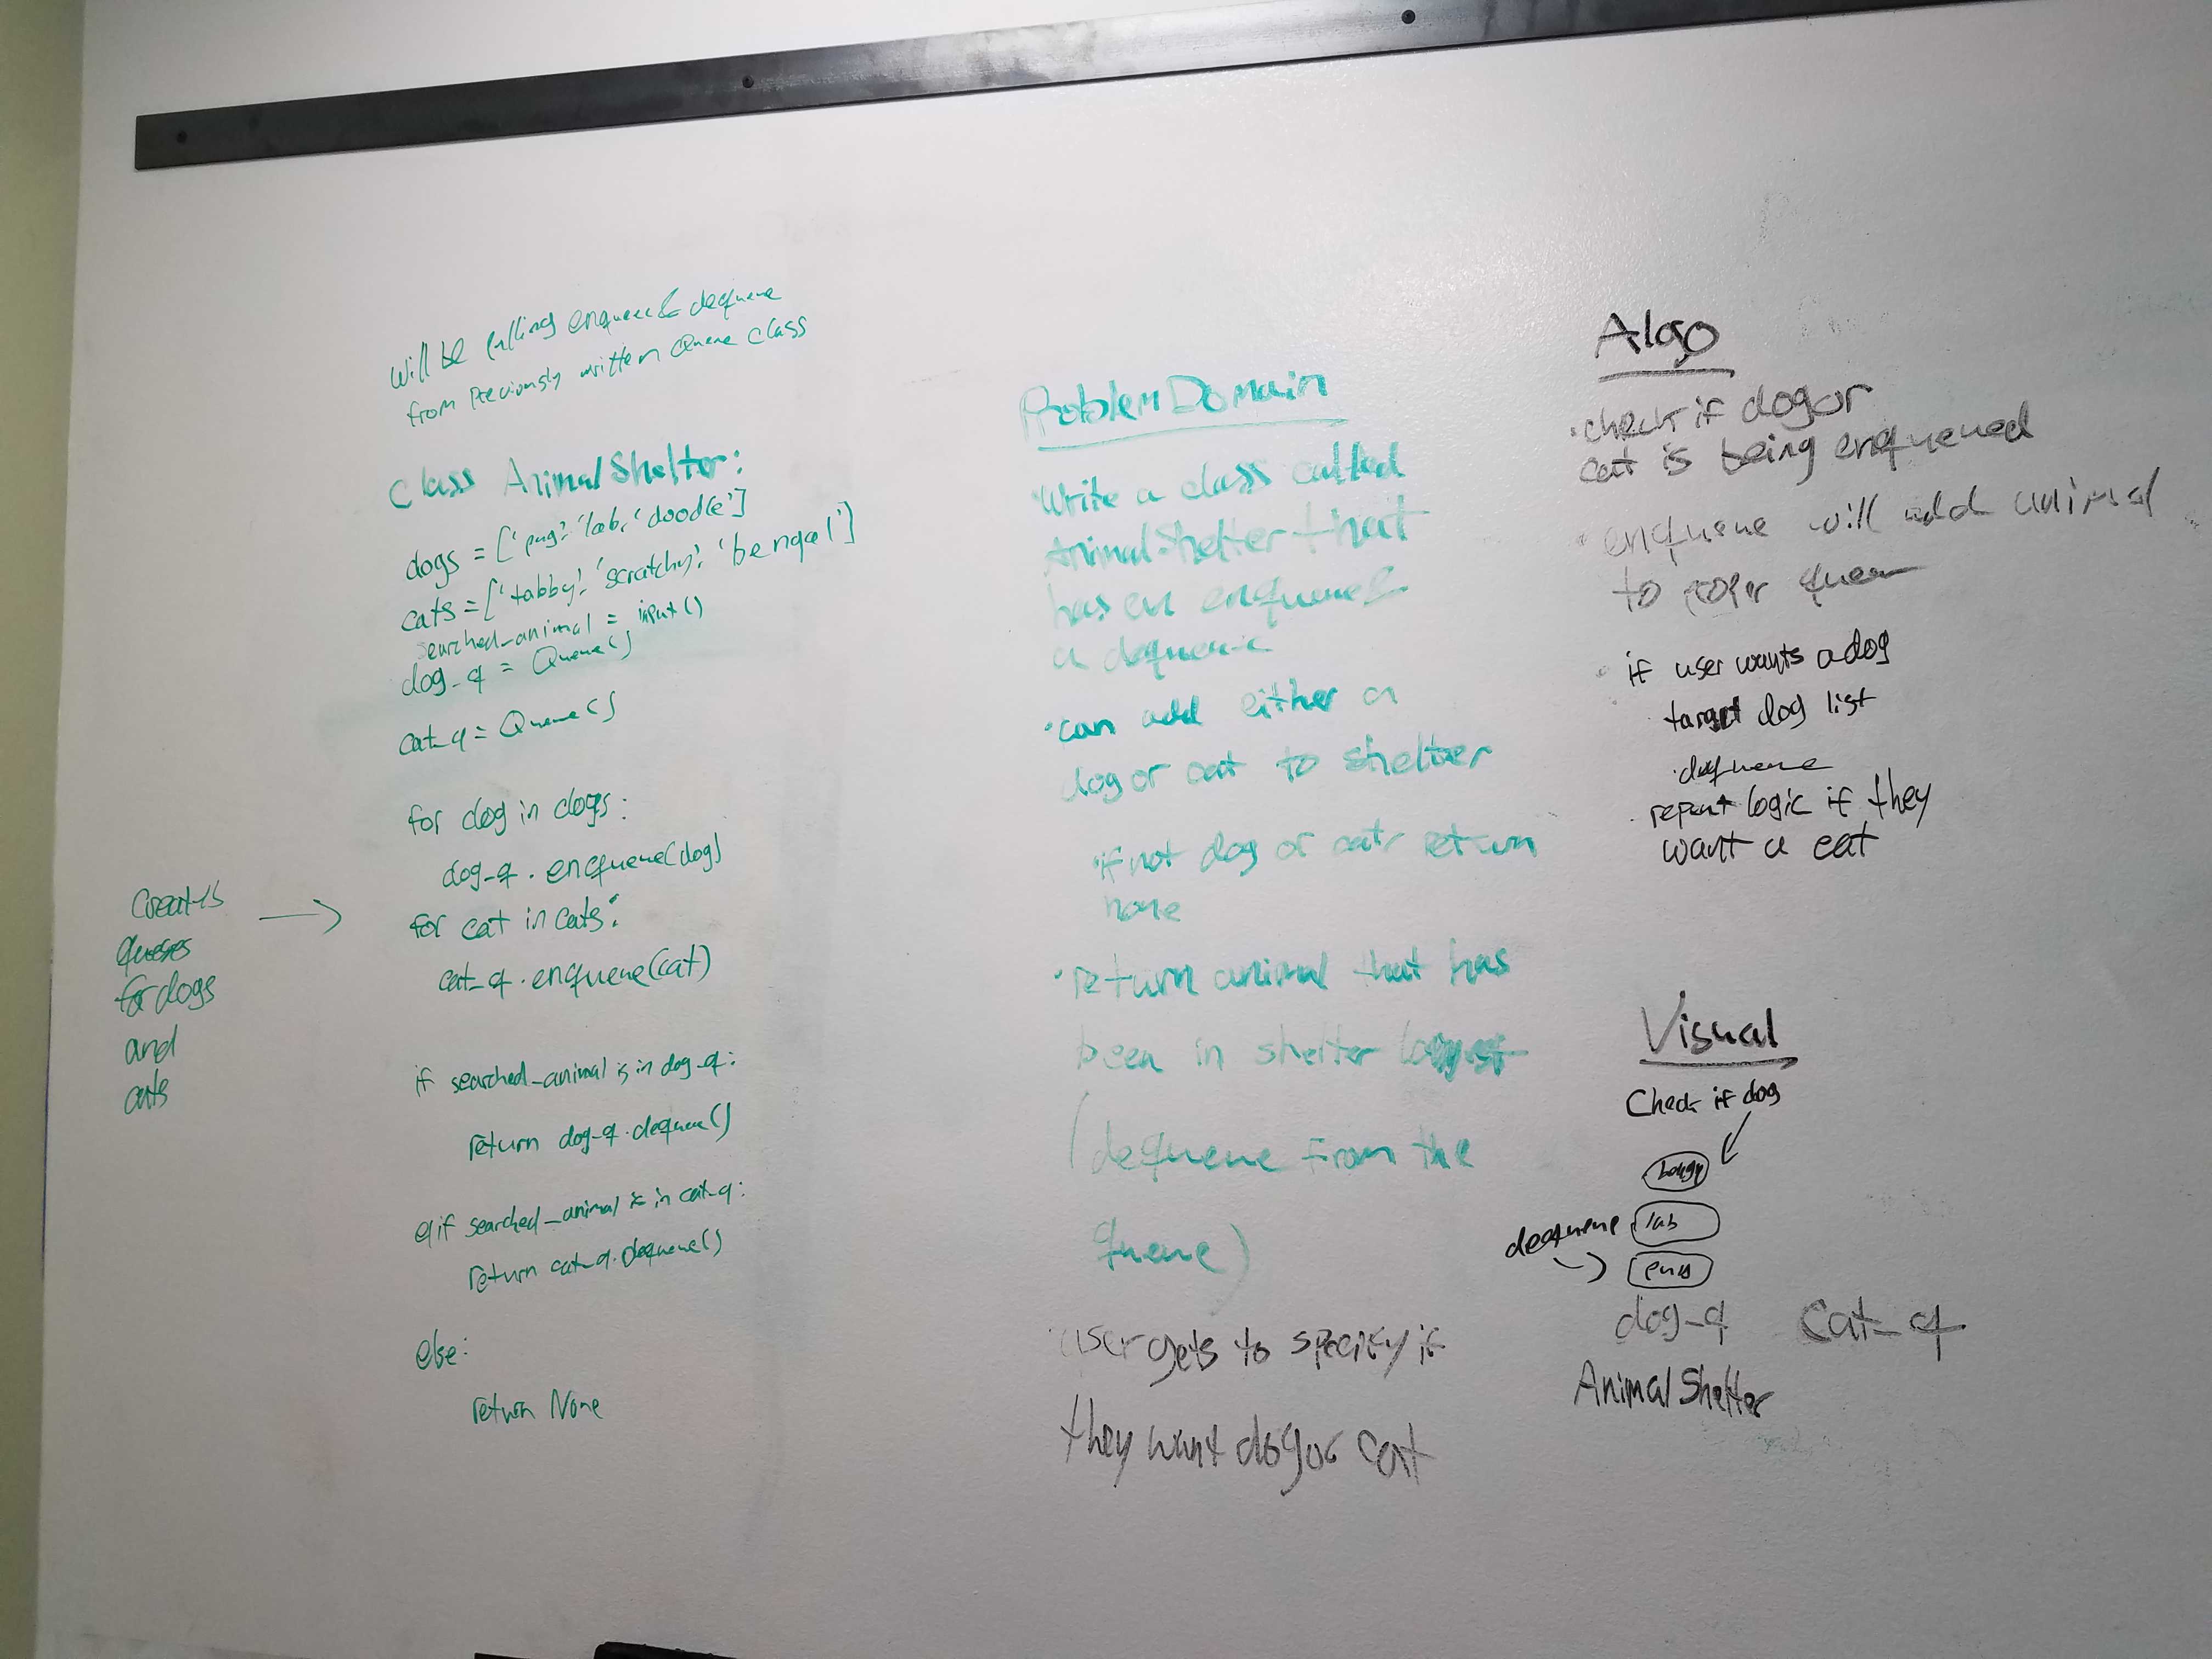 Will be pulling enqueue & dequeue
from previously written Queue class
Class AnimalShelter:
dogs = ['pug', 'lab', 'doodle']
cats = ['tabby', 'scratchy', 'bengal']
searched_animal = input()
dog_q = Queue()
cat_q = Queue()
for dog in dogs:
dog_q.enqueue(dog)
for cat in cats:
cat_q.enqueue(cat)
if searched_animal is in dog_q:
return dog_q.dequeue()
elif searched_animal is in cat_q:
return cat_q.dequeue()
else:
return None
Creates
queues
for dogs
and
cats
Problem Domain
Write a class called
AnimalShelter that
has an enqueue &
a dequeue
can add either a
dog or cat to shelter
if not dog or cat return
none
return animal that has
been in shelter longest
(dequeue from the
queue)
user gets to specify if
they want dog or cat
Algo
check if dog or
cat is being enqueued
enqueue will add animal
to
if user wants a dog
target dog list
dequeue
repeat logic if they
want a cat
Visual
Check if dog
dequeue
lab
dog_q cat_q
AnimalShelter